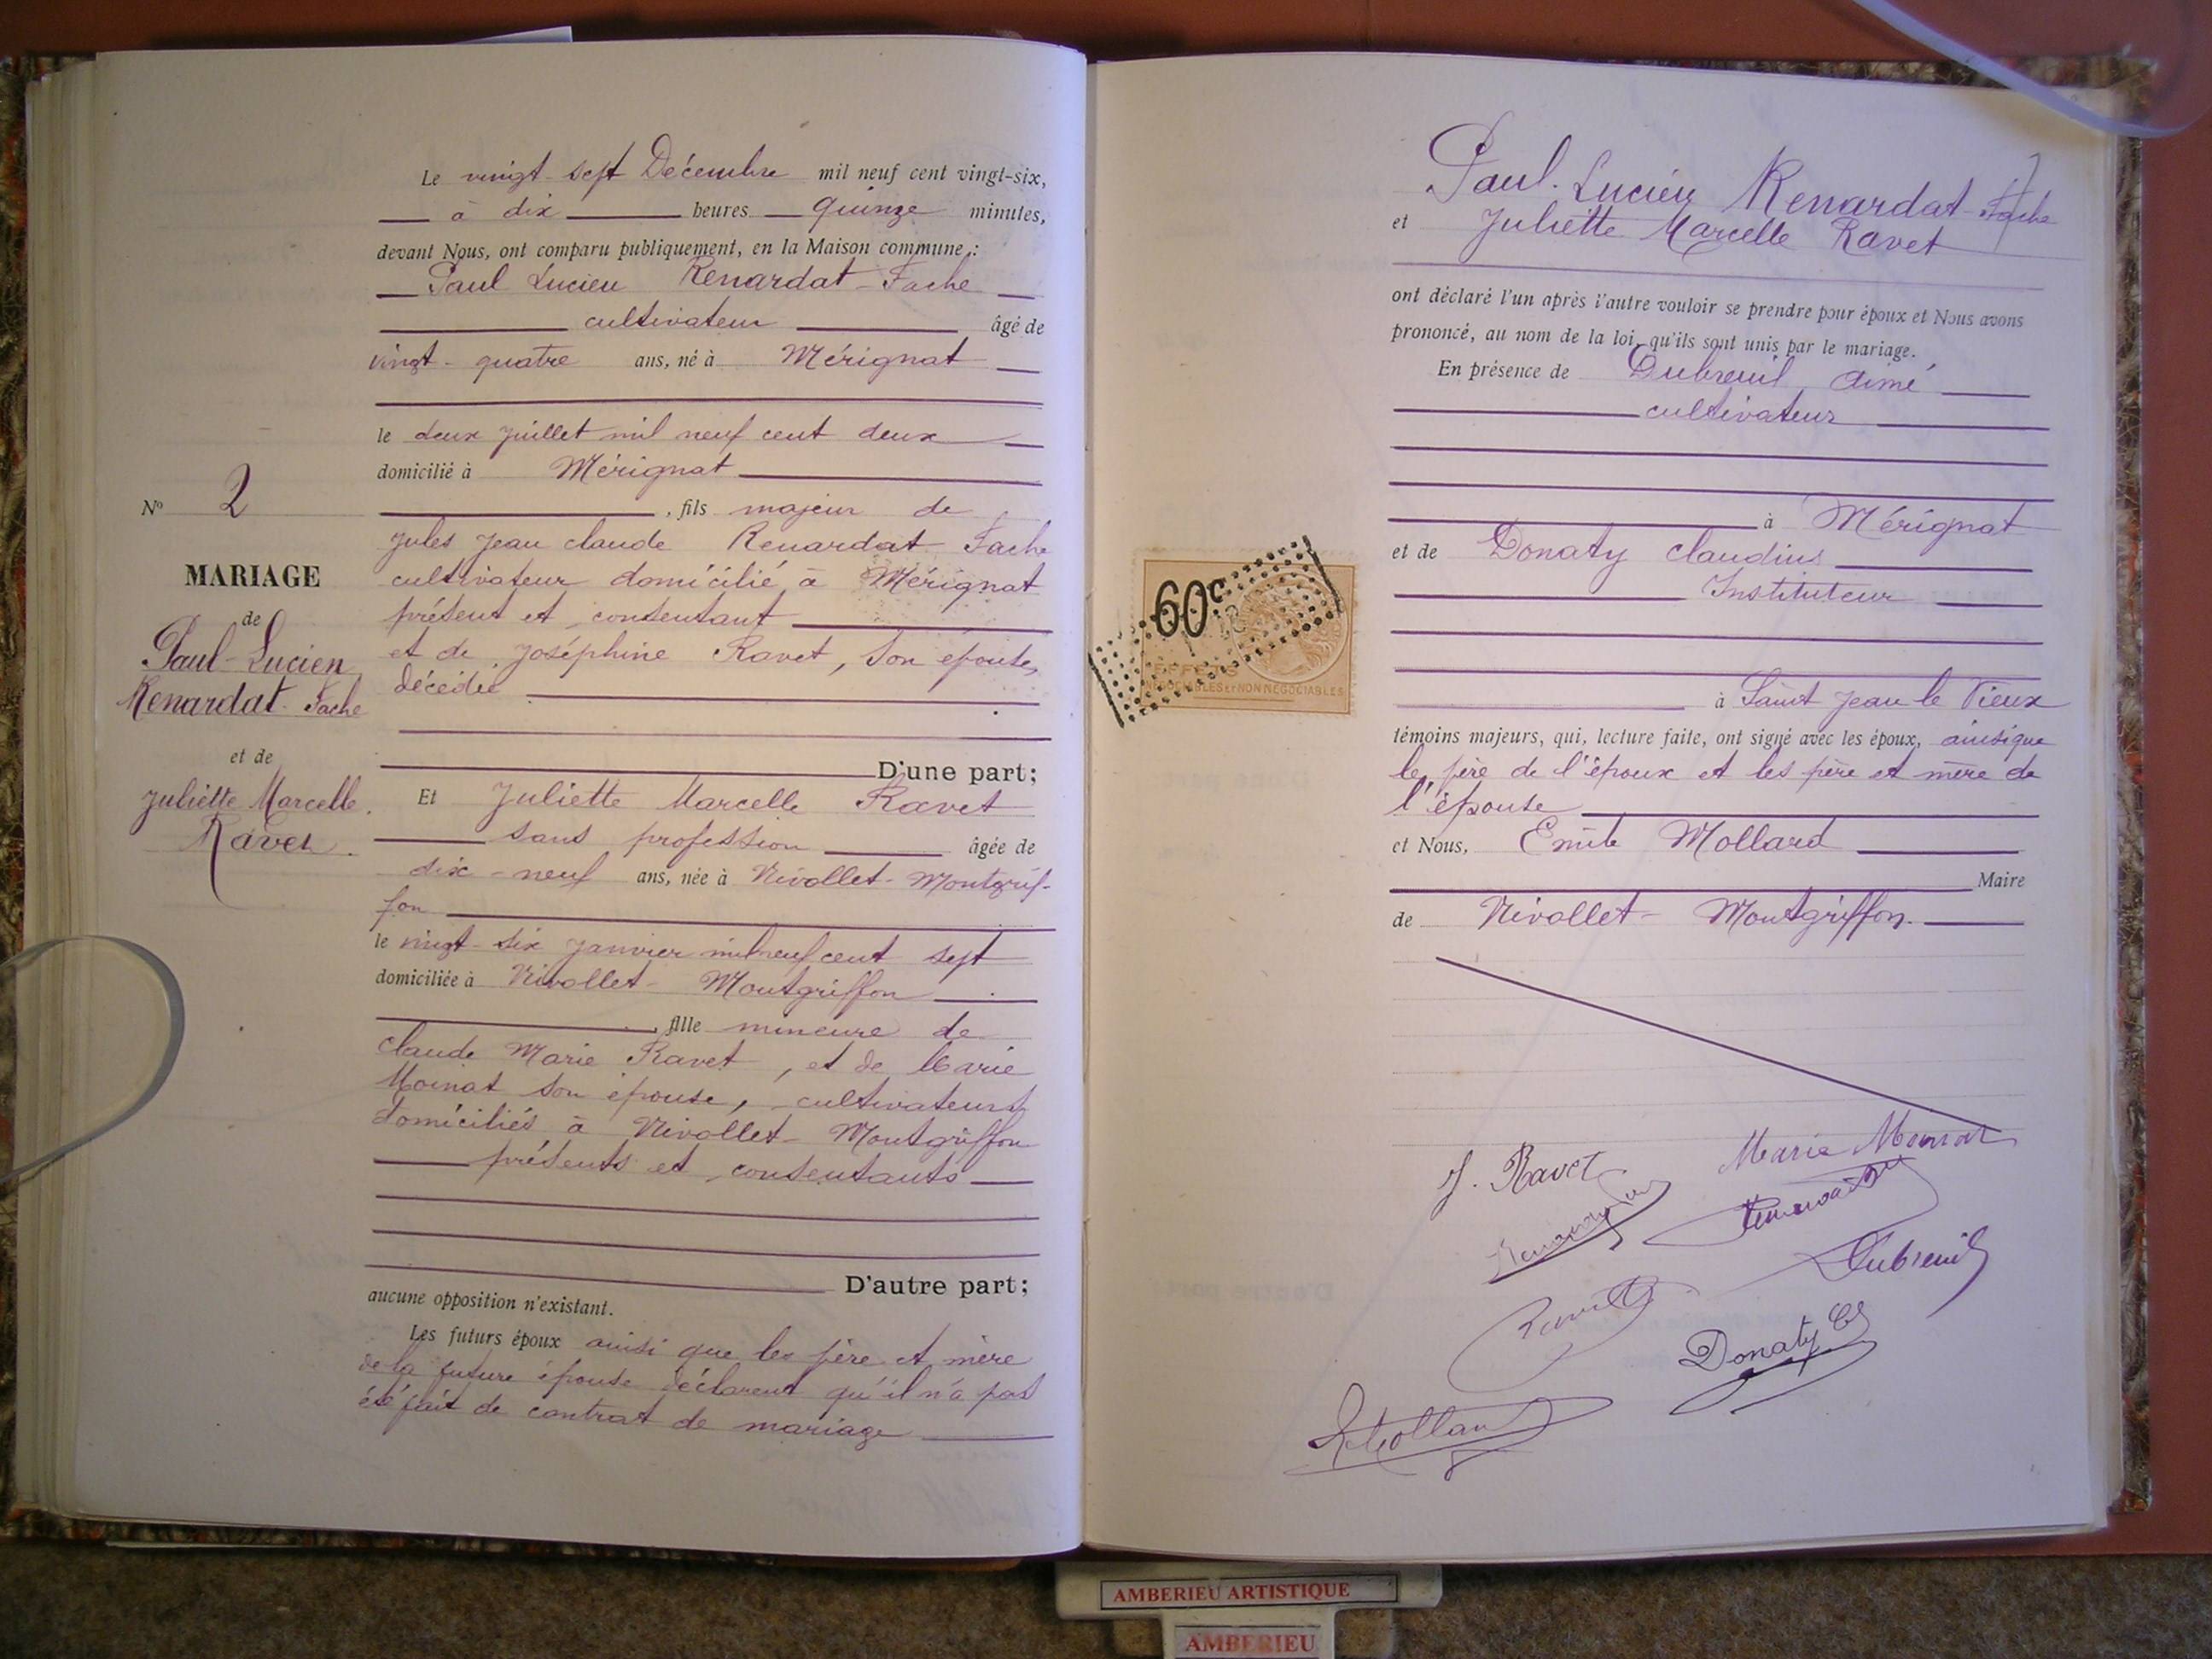 Le vingt-sept Décembre mil neuf cent vingt-six,
à dix heures quinze minutes,
devant Nous, ont comparu publiquement, en la Maison commune :
Paul Lucien Renardat-Fache
cultivateur âgé de
vingt-quatre ans, né à Mérignat
le deux juillet mil neuf cent deux
domicilié à Mérignat
, fils majeur de
Jules Jean Claude Renardat Fache
cultivateur domicilié à Mérignat
présent et consentant
et de Joséphine Ravet, son épouse,
décédée
D'une part;
Et Juliette Marcelle Ravet
sans profession âgée de
dix-neuf ans, née à Nivollet-Montgrif-
fon
le vingt-six janvier mil neuf cent sept
domiciliée à Nivollet-Montgriffon
, fille mineure de
Claude Marie Ravet, et de Marie
Moinat son épouse, cultivateurs
domiciliés à Nivollet-Montgriffon
présents et consentants
D'autre part;
aucune opposition n'existant.
Les futurs époux ainsi que les père et mère
de la future épouse déclarent qu'il n'a pas
été fait de contrat de mariage
No 2
MARIAGE
de
Paul-Lucien
Renardat-Fache
et de
Juliette Marcelle.
Ravet.
Paul. Lucien Renardat-Fache
et Juliette Marcelle Ravet
ont déclaré l'un après l'autre vouloir se prendre pour époux et Nous avons
prononcé, au nom de la loi, qu'ils sont unis par le mariage.
En présence de Dubreuil Aimé
cultivateur
à Mérignat
et de Donaty Claudius
Instituteur
à Saint Jean le Vieux
témoins majeurs, qui, lecture faite, ont signé avec les époux, ainsi que
le père de l'époux et les père et mère de
l'épouse
et Nous, Emile Mollard
Maire
de Nivollet-Montgriffon.
60c
EFFETS
NÉGOCIABLES ET NON NÉGOCIABLES
J. Ravet
Marie Moinat
Dubreuil
Donaty Cl
Mollard
AMBERIEU ARTISTIQUE
AMBERIEU